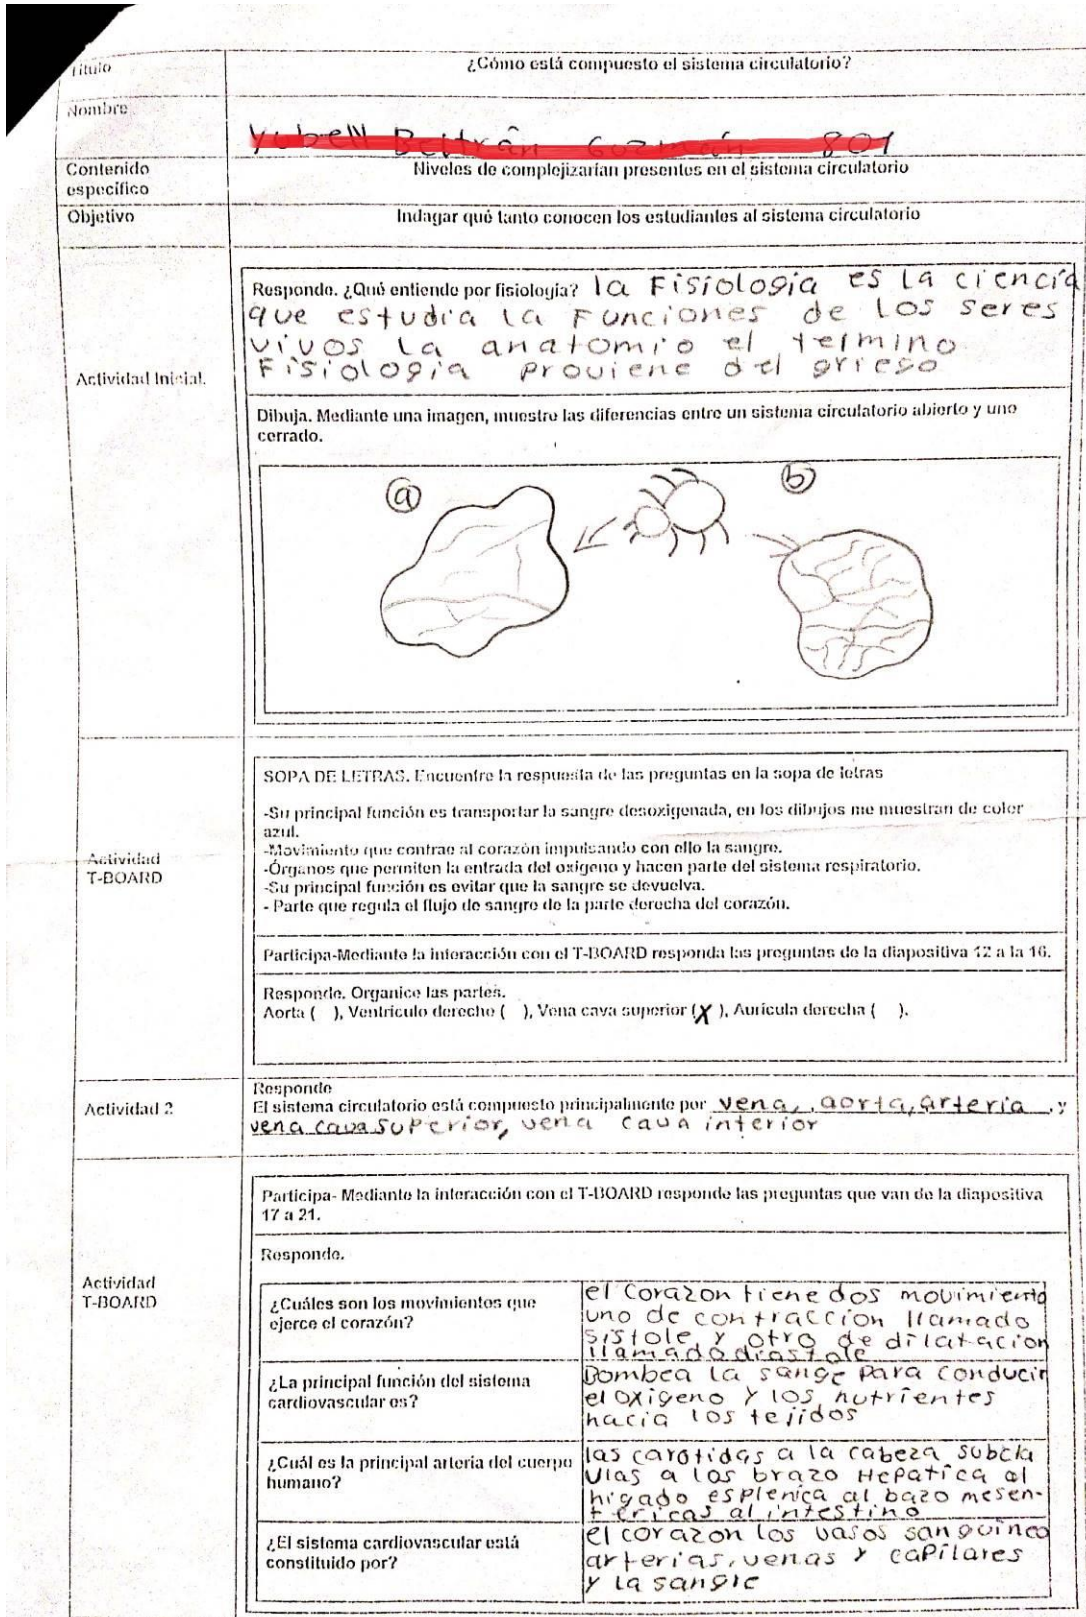 Título
¿Cómo está compuesto el sistema circulatorio?
Nombre
801
Contenido
específico
Niveles de complejizarían presentes en el sistema circulatorio
Objetivo
Indagar qué tanto conocen los estudiantes al sistema circulatorio
Actividad Inicial.
Responde. ¿Qué entiende por fisiología? la Fisiologia es la ciencia
que estudia la Funciones de los seres
vivos la anatomio el termino
Fisiologia proviene del griego
Dibuja. Mediante una imagen, muestre las diferencias entre un sistema circulatorio abierto y uno
cerrado.
a
b
Actividad
T-BOARD
SOPA DE LETRAS. Encuentre la respuesta de las preguntas en la sopa de letras
-Su principal función es transportar la sangre desoxigenada, en los dibujos me muestran de color
azul.
-Movimiento que contrae al corazón impulsando con ello la sangre.
-Órganos que permiten la entrada del oxigeno y hacen parte del sistema respiratorio.
-Su principal función es evitar que la sangre se devuelva.
- Parte que regula el flujo de sangre de la parte derecha del corazón.
Participa-Mediante la interacción con el T-BOARD responda las preguntas de la diapositiva 12 a la 16.
Responde. Organice las partes.
Aorta ( ), Ventrículo derecho ( ), Vena cava superior (X ), Aurícula derecha ( ).
Actividad 2
Responde
El sistema circulatorio está compuesto principalmente por vena, aorta, arteria , y
vena cava superior, vena cava interior
Actividad
T-BOARD
Participa- Mediante la interacción con el T-BOARD responde las preguntas que van de la diapositiva
17 a 21.
Responde.
¿Cuáles son los movimientos que
ejerce el corazón?
el Corazon tiene dos movimiento
uno de contraccion llamado
sistole y otro de dilatacion
llamado diastole
¿La principal función del sistema
cardiovascular es?
Bombea la sange para conducir
el oxigeno y los nutrientes
hacia los tejidos
¿Cuál es la principal arteria del cuerpo
humano?
las carotidas a la cabeza subcla
vias a los brazo Hepatica al
higado esplenica al bazo mesen-
tericas al intestino
¿El sistema cardiovascular está
constituido por?
el corazon los vasos sanguineo
arterias, venas y capilares
y la sangre